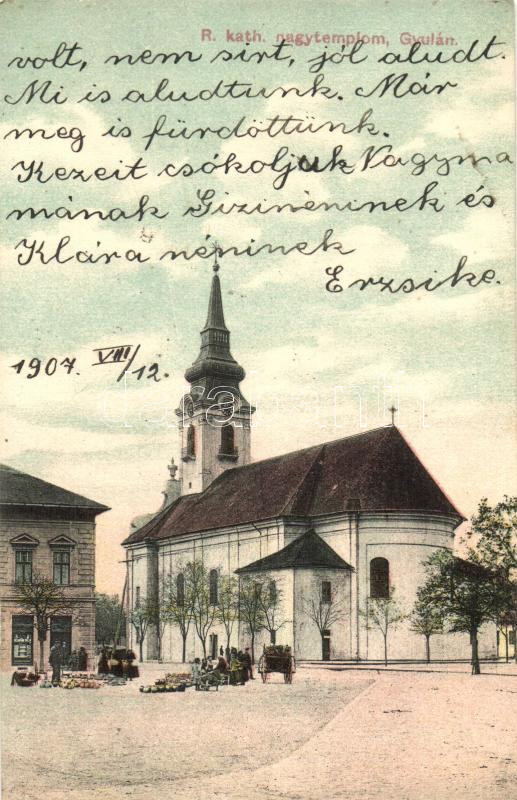 R. kath. nagytemplom, Gyulán.
volt, nem sirt, jól aludt.
Mi is aludtunk. Már
meg is fürdöttünk.
Kezeit csókoljuk Nagyma
mának Gizinéninek és
Klára néninek
Erzsike.
1907. VIII/12.
darabanth